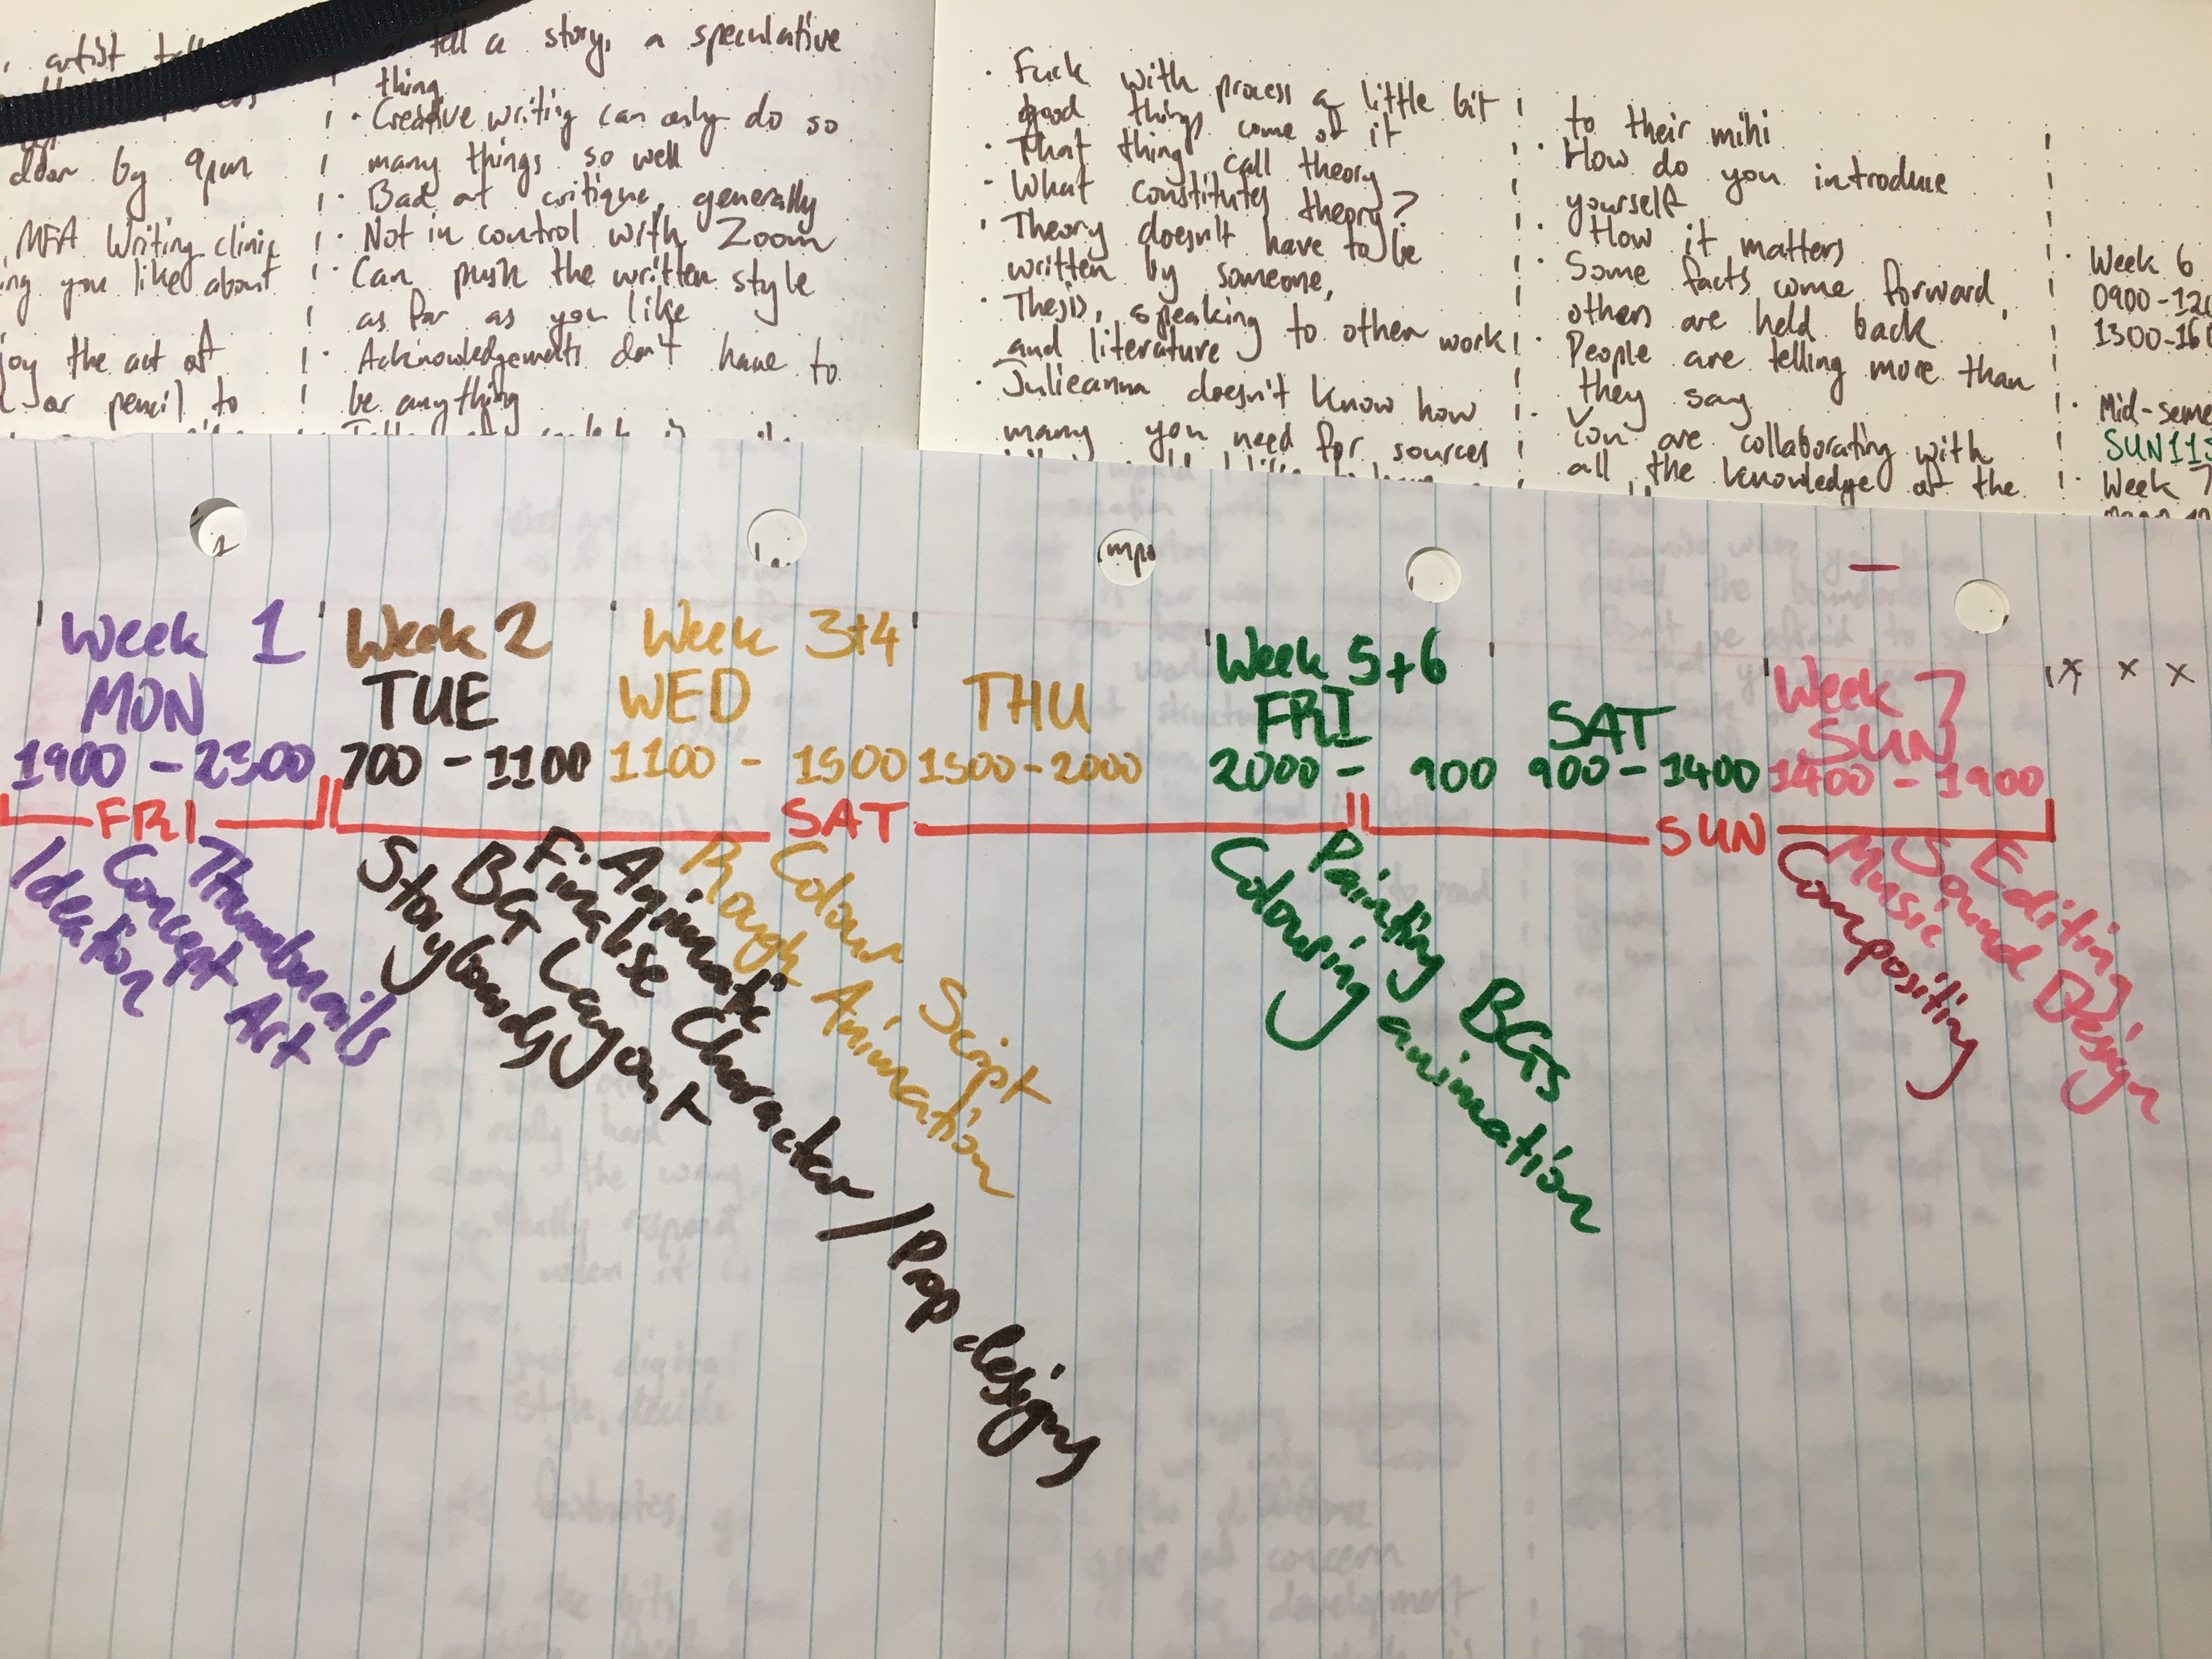 artist
door by 9pm
MFA Writing clinic
ing you like about
joy the act of
or pencil to
tell a story, a speculative
thing
· Creative writing can only do so
many things so well
· Bad at critique, generally
· Not in control with Zoom
· Can push the written style
as far as you like
· Acknowledgements don't have to
be anything
· Fuck with process a little bit
good things come of it
· That thing call theory
· What constitutes theory?
· Theory doesn't have to be
written by someone,
· Thesis, speaking to other work
and literature
· Julieanna doesn't know how
many you need for sources
to their mihi
· How do you introduce
yourself
· How it matters
· Some facts come forward,
others are held back
· People are telling more than
they say
· You are collaborating with
all the knowledge of the
· Week 6
0900-120
1300-160
· Mid-seme
SUN11
· Week 7
Week 1
MON
1900 - 2300
Week 2
TUE
700 - 1100
Week 3+4
WED
1100 - 1500
THU
1500 - 2000
Week 5+6
FRI
2000 - 900
SAT
900 - 1400
Week 7
SUN
1400 - 1900
x x x
FRI
SAT
SUN
Ideation
Concept Art
Thumbnails
Storyboards
BG Layout
Finalise Character / Prop designs
Animatic
Rough Animation
Colour Script
Colouring animation
Painting BGs
Compositing
Music
Sound Design
Editing